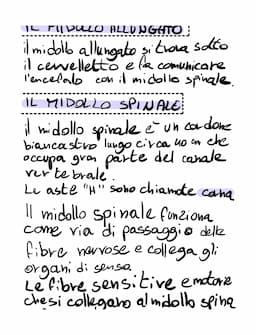 IL MIDOLLO ALLUNGATO:
il midollo allungato si trova sotto
il cervelletto e fa comunicare
l'encefalo con il midollo spinale.
IL MIDOLLO SPINALE
il midollo spinale è un cordone
biancastro lungo circa 40 cm che
occupa gran parte del canale
vertebrale.
Le aste "H" sono chiamate corna
Il midollo spinale funziona
come via di passaggio delle
fibre nervose e collega gli
organi di senso.
Le fibre sensitive e motorie
che si collegano al midollo spina